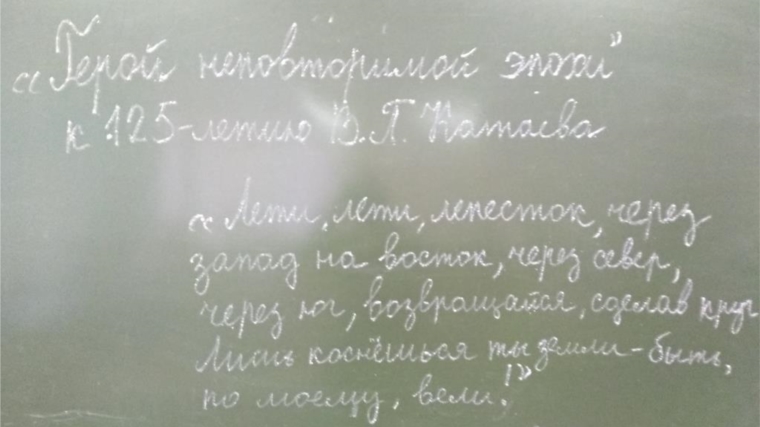 „Герой неповторимой эпохи"
к 125-летию В.П. Катаева
„Лети, лети, лепесток, через
запад на восток, через север,
через юг, возвращайся, сделав круг
Лишь коснёшься ты земли - быть,
по моему, вели!"